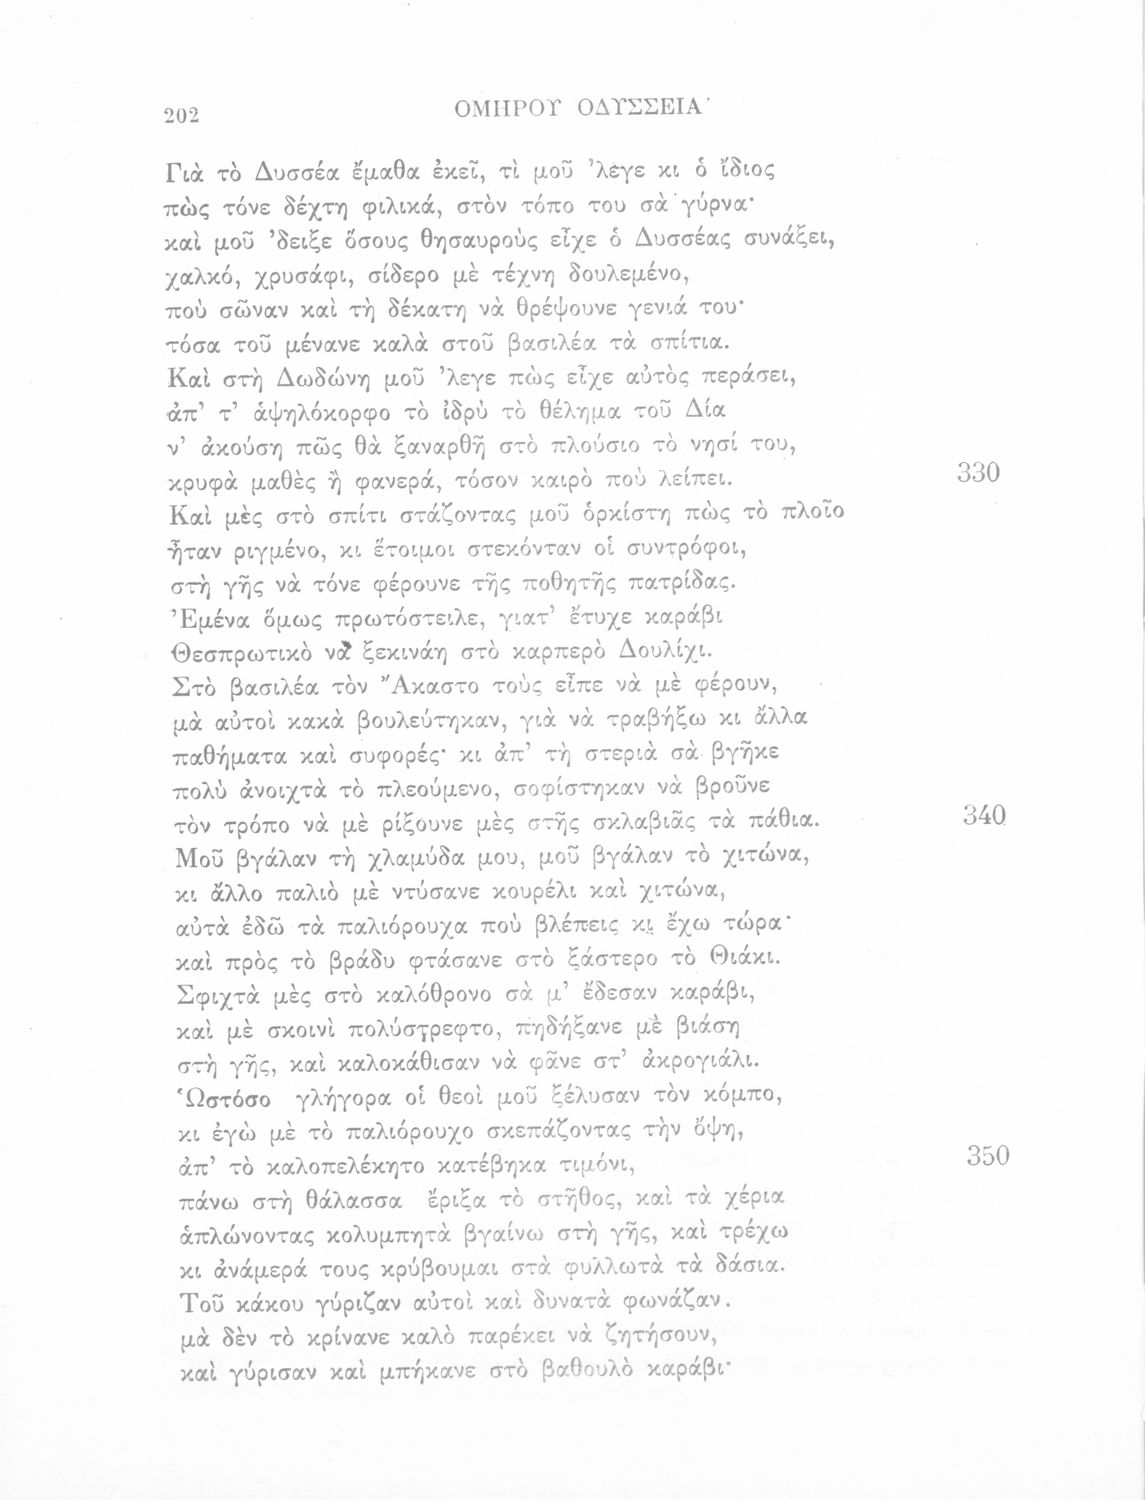 202
ΟΜΗΡΟΥ ΟΔΥΣΣΕΙΑ
Γιὰ τὸ Δυσσέα ἔμαθα ἐκεῖ, τὶ μοῦ ’λεγε κι ὁ ἴδιος
πὼς τόνε δέχτη φιλικά, στὸν τόπο του σὰ γύρνα·
καὶ μοῦ ’δειξε ὅσους θησαυροὺς εἶχε ὁ Δυσσέας συνάξει,
χαλκό, χρυσάφι, σίδερο μὲ τέχνη δουλεμένο,
ποὺ σῶναν καὶ τὴ δέκατη νὰ θρέψουνε γενιά του·
τόσα τοῦ μένανε καλὰ στοῦ βασιλέα τὰ σπίτια.
Καὶ στὴ Δωδώνη μοῦ ’λεγε πὼς εἶχε αὐτὸς περάσει,
ἀπ’ τ’ ἁψηλόκορφο τὸ ἰδρὺ τὸ θέλημα τοῦ Δία
ν’ ἀκούση πῶς θὰ ξαναρθῆ στὸ πλούσιο τὸ νησί του,
κρυφὰ μαθὲς ἢ φανερά, τόσον καιρὸ ποὺ λείπει. 330
Καὶ μὲς στὸ σπίτι στάζοντας μοῦ ὁρκίστη πὼς τὸ πλοῖο
ἦταν ριγμένο, κι ἕτοιμοι στεκόνταν οἱ συντρόφοι,
στὴ γῆς νὰ τόνε φέρουνε τῆς ποθητῆς πατρίδας.
Ἐμένα ὅμως πρωτόστειλε, γιατ’ ἔτυχε καράβι
Θεσπρωτικὸ νὰ ξεκινάη στὸ καρπερὸ Δουλίχι.
Στὸ βασιλέα τὸν Ἄκαστο τοὺς εἶπε νὰ μὲ φέρουν,
μὰ αὐτοὶ κακὰ βουλεύτηκαν, γιὰ νὰ τραβήξω κι ἄλλα
παθήματα καὶ συφορές· κι ἀπ’ τὴ στεριὰ σὰ βγῆκε
πολὺ ἀνοιχτὰ τὸ πλεούμενο, σοφίστηκαν νὰ βροῦνε
τὸν τρόπο νὰ μὲ ρίξουνε μὲς στῆς σκλαβιᾶς τὰ πάθια. 340
Μοῦ βγάλαν τὴ χλαμύδα μου, μοῦ βγάλαν τὸ χιτώνα,
κι ἄλλο παλιὸ μὲ ντύσανε κουρέλι καὶ χιτώνα,
αὐτὰ ἐδῶ τὰ παλιόρουχα ποὺ βλέπεις κι ἔχω τώρα·
καὶ πρὸς τὸ βράδυ φτάσανε στὸ ξάστερο τὸ Θιάκι.
Σφιχτὰ μὲς στὸ καλόθρονο σὰ μ’ ἔδεσαν καράβι,
καὶ μὲ σκοινὶ πολύστρεφτο, πηδήξανε μὲ βιάση
στὴ γῆς, καὶ καλοκάθισαν νὰ φᾶνε στ’ ἀκρογιάλι.
Ὡστόσο γλήγορα οἱ θεοὶ μοῦ ξέλυσαν τὸν κόμπο,
κι ἐγὼ μὲ τὸ παλιόρουχο σκεπάζοντας τὴν ὄψη,
ἀπ’ τὸ καλοπελέκητο κατέβηκα τιμόνι, 350
πάνω στὴ θάλασσα ἔριξα τὸ στῆθος, καὶ τὰ χέρια
ἁπλώνοντας κολυμπητὰ βγαίνω στὴ γῆς, καὶ τρέχω
κι ἀνάμερά τους κρύβουμαι στὰ φυλλωτὰ τὰ δάσια.
Τοῦ κάκου γύριζαν αὐτοὶ καὶ δυνατὰ φωνάζαν.
μὰ δὲν τὸ κρίνανε καλὸ παρέκει νὰ ζητήσουν,
καὶ γύρισαν καὶ μπήκανε στὸ βαθουλὸ καράβι·